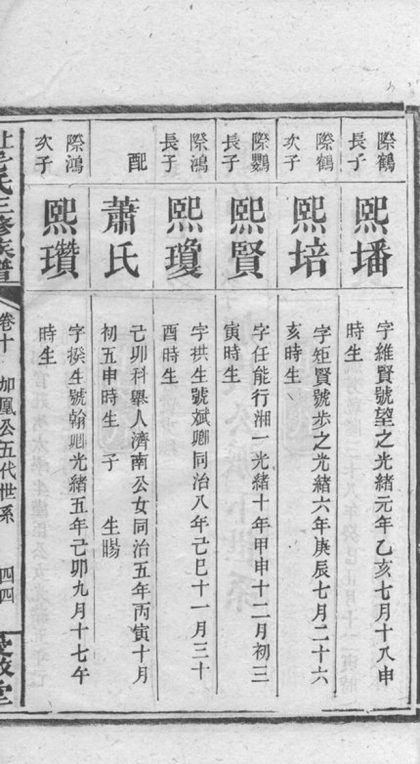 際鶴
長子
熙墦
字維賢號望之光緒元年乙亥七月十八申
時生
際鶴
次子
熙培
字矩賢號步之光緒六年庚辰七月二十六
亥時生
際鸚
長子
熙賢
字任能行湘一光緒十年甲申十二月初三
寅時生
際鴻
長子
熙瓊
字拱生號斌卿同治八年己巳十一月三十
酉時生
配
蕭氏
己卯科舉人濟南公女同治五年丙寅十月
初五申時生 子 生賜
際鴻
次子
熙瓚
字揆生號翰卿光緒五年己卯九月十七午
時生
氏三修族譜
卷十 加凰公五代世系 四四
堂